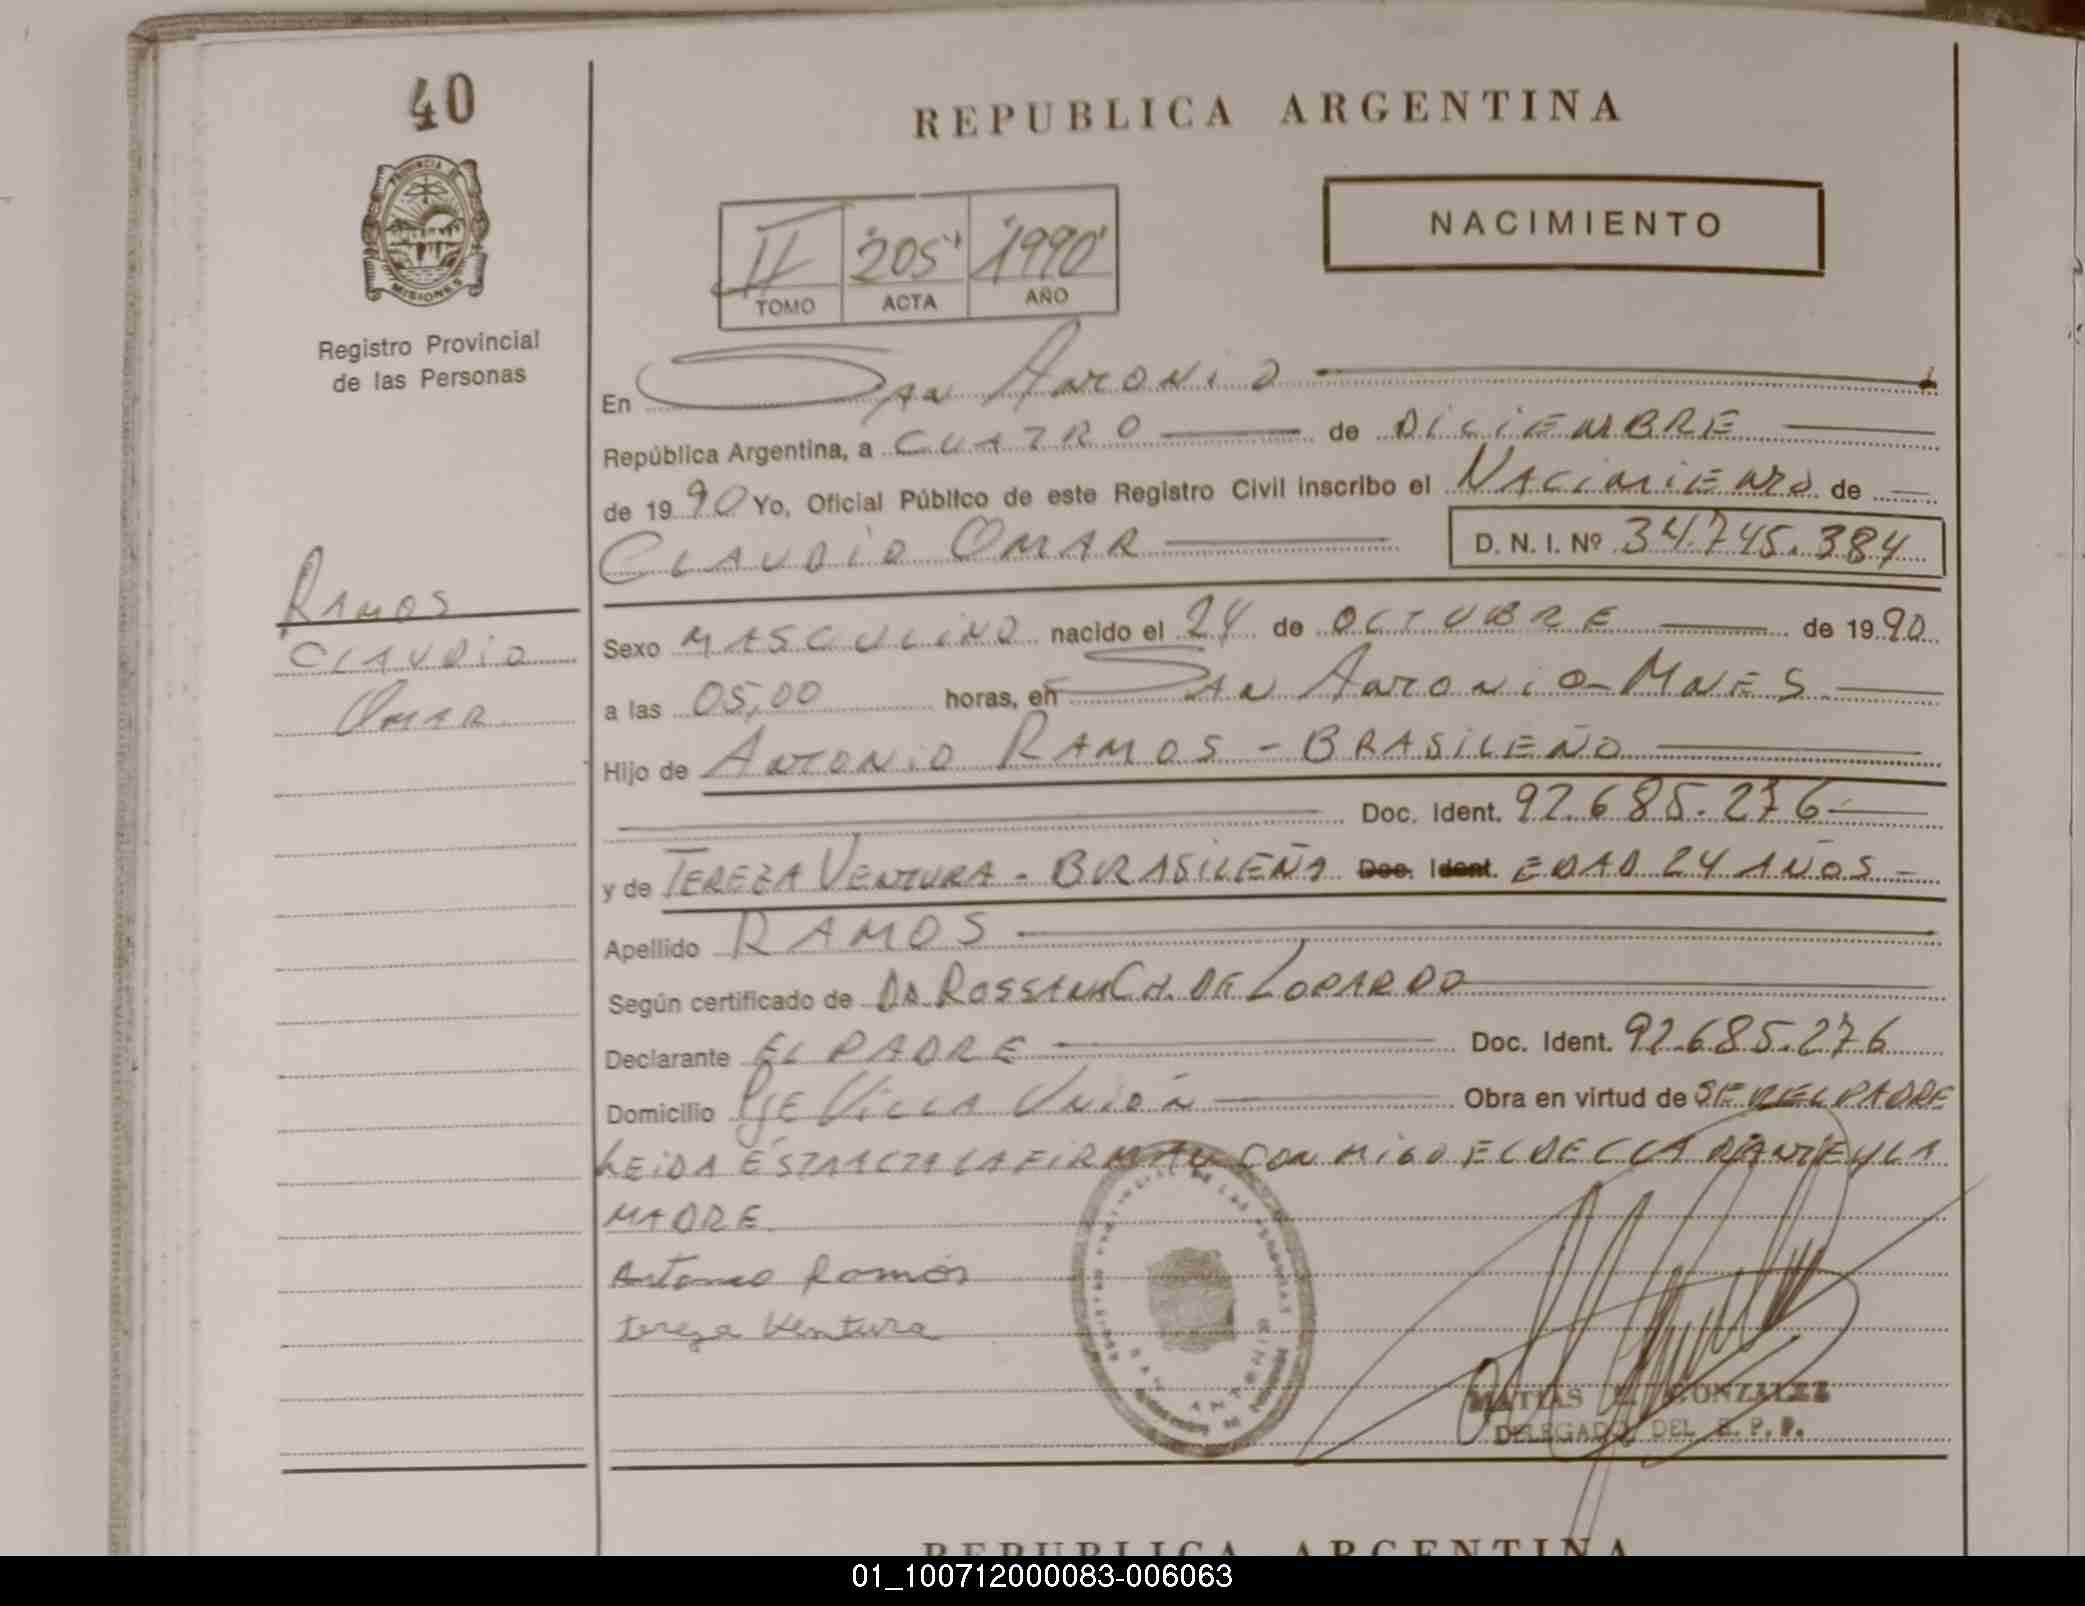 40
REPUBLICA ARGENTINA
PROVINCIA DE
MISIONES
Registro Provincial
de las Personas
NACIMIENTO
II 205 1990
TOMO ACTA AÑO
En San Antonio
República Argentina, a CUATRO de DICIEMBRE
de 1990 Yo, Oficial Público de este Registro Civil inscribo el NACIMIENTO de
CLAUDIO OMAR D. N. I. Nº 34.745.384
RAMOS
CLAUDIO
OMAR
Sexo MASCULINO nacido el 24 de OCTUBRE de 1990
a las 05,00 horas, en SAN ANTONIO-MNES
Hijo de ANTONIO RAMOS - BRASILEÑO
Doc. Ident. 92.685.276
y de TEREZA VENTURA - BRASILEÑA Doc. Ident. EDAD 24 AÑOS
Apellido RAMOS
Según certificado de DE LOPARDO
Declarante EL PADRE Doc. Ident. 92.685.276
Domicilio PJE VILLA UNIÓN Obra en virtud de SER EL PADRE
LEIDA ESTA ACTA LA FIRMAN CON MIGO EL DECLARANTE Y LA
MADRE
Antonio Ramos
tereza Ventura
MATIAS GONZALEZ
DELEGADO DEL R. P. P.
REPUBLICA ARGENTINA
01_100712000083-006063